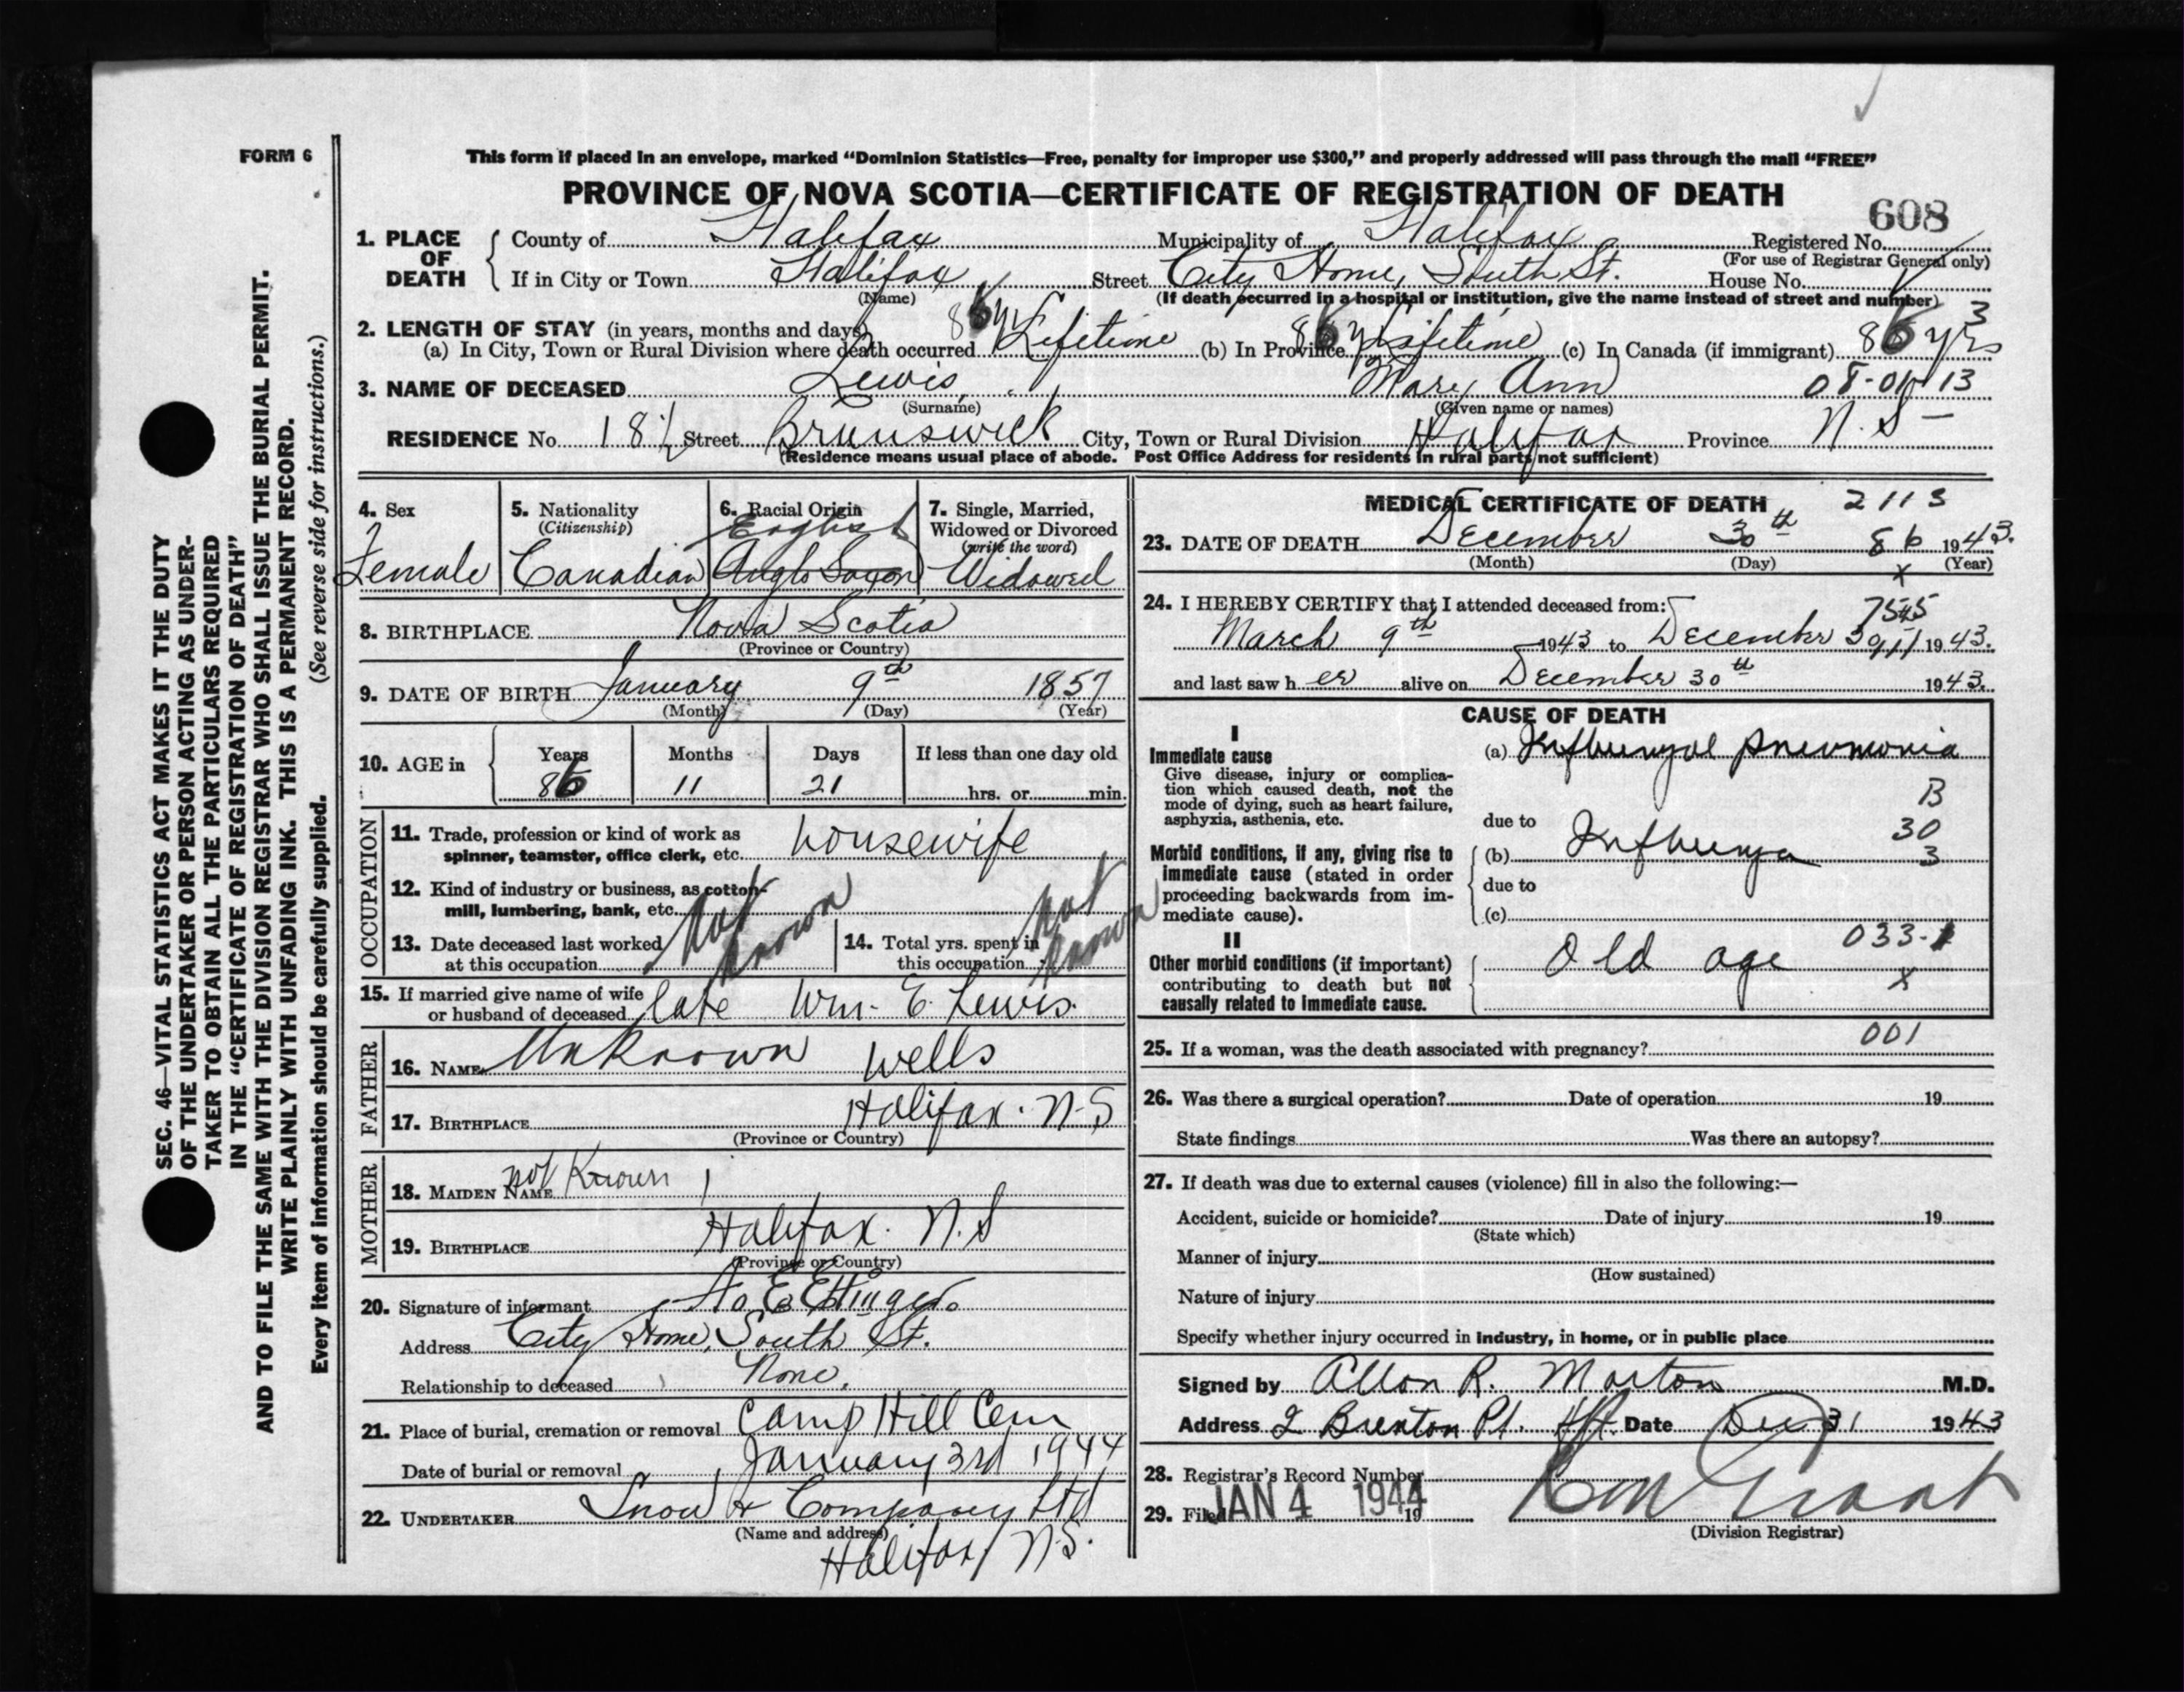 FORM 6
This form if placed in an envelope, marked “Dominion Statistics—Free, penalty for improper use $300,” and properly addressed will pass through the mail “FREE”
PROVINCE OF NOVA SCOTIA—CERTIFICATE OF REGISTRATION OF DEATH
608
1. PLACE OF DEATH
County of Halifax Municipality of Halifax Registered No.
(For use of Registrar General only)
If in City or Town Halifax Street City Home, South St. House No.
(Name) (If death occurred in a hospital or institution, give the name instead of street and number)
2. LENGTH OF STAY (in years, months and days)
(a) In City, Town or Rural Division where death occurred 86 yrs Lifetime (b) In Province 86 yrs Lifetime (c) In Canada (if immigrant) 86 yrs 3
3. NAME OF DECEASED Lewis, Mary Ann
(Surname) (Given name or names)
RESIDENCE No. 18½ Street Brunswick City, Town or Rural Division Halifax Province N.S—
(Residence means usual place of abode. Post Office Address for residents in rural parts not sufficient)
4. Sex
Female
5. Nationality
(Citizenship)
Canadian
6. Racial Origin
English
Anglo Saxon
7. Single, Married, Widowed or Divorced
(write the word)
Widowed
8. BIRTHPLACE Nova Scotia
(Province or Country)
9. DATE OF BIRTH January 9th 1857
(Month) (Day) (Year)
10. AGE in
Years Months Days If less than one day old
86 11 21 hrs. or min.
OCCUPATION
11. Trade, profession or kind of work as
spinner, teamster, office clerk, etc. housewife
12. Kind of industry or business, as cotton-
mill, lumbering, bank, etc.
13. Date deceased last worked
at this occupation not known
14. Total yrs. spent in
this occupation not known
15. If married give name of wife
or husband of deceased late Wm. E. Lewis.
FATHER
16. NAME Unknown Wells
17. BIRTHPLACE Halifax. N-S
(Province or Country)
MOTHER
18. MAIDEN NAME not Known
19. BIRTHPLACE Halifax. N.S
(Province or Country)
20. Signature of informant E Ettinger.
Address City Home, South St.
Relationship to deceased None.
21. Place of burial, cremation or removal Camp Hill Cem
Date of burial or removal January 3rd 1944
22. UNDERTAKER Snow & Company Ltd
(Name and address)
Halifax N.S.
MEDICAL CERTIFICATE OF DEATH
23. DATE OF DEATH December 30th 86 1943.
(Month) (Day) (Year)
24. I HEREBY CERTIFY that I attended deceased from:
March 9th 1943 to December 30 1943.
and last saw h er alive on December 30th 1943.
CAUSE OF DEATH
I
Immediate cause
Give disease, injury or complica-
tion which caused death, not the
mode of dying, such as heart failure,
asphyxia, asthenia, etc.
(a) Influenzal pneumonia
B
due to
30
Morbid conditions, if any, giving rise to
immediate cause (stated in order
proceeding backwards from im-
mediate cause).
(b) Influenza 3
due to
(c)
II
Other morbid conditions (if important)
contributing to death but not
causally related to immediate cause.
033-1
Old age
x
25. If a woman, was the death associated with pregnancy? 001
26. Was there a surgical operation? Date of operation 19
State findings Was there an autopsy?
27. If death was due to external causes (violence) fill in also the following:—
Accident, suicide or homicide? Date of injury 19
(State which)
Manner of injury
(How sustained)
Nature of injury
Specify whether injury occurred in industry, in home, or in public place
Signed by Allan R. Morton M.D.
Address 2 Brenton Pl. Hfx. Date Dec 31 1943
28. Registrar's Record Number
29. Filed JAN 4 1944 19
(Division Registrar)
SEC. 46—VITAL STATISTICS ACT MAKES IT THE DUTY
OF THE UNDERTAKER OR PERSON ACTING AS UNDER-
TAKER TO OBTAIN ALL THE PARTICULARS REQUIRED
IN THE “CERTIFICATE OF REGISTRATION OF DEATH”
AND TO FILE THE SAME WITH THE DIVISION REGISTRAR WHO SHALL ISSUE THE BURIAL PERMIT.
WRITE PLAINLY WITH UNFADING INK. THIS IS A PERMANENT RECORD.
Every item of information should be carefully supplied. (See reverse side for instructions.)